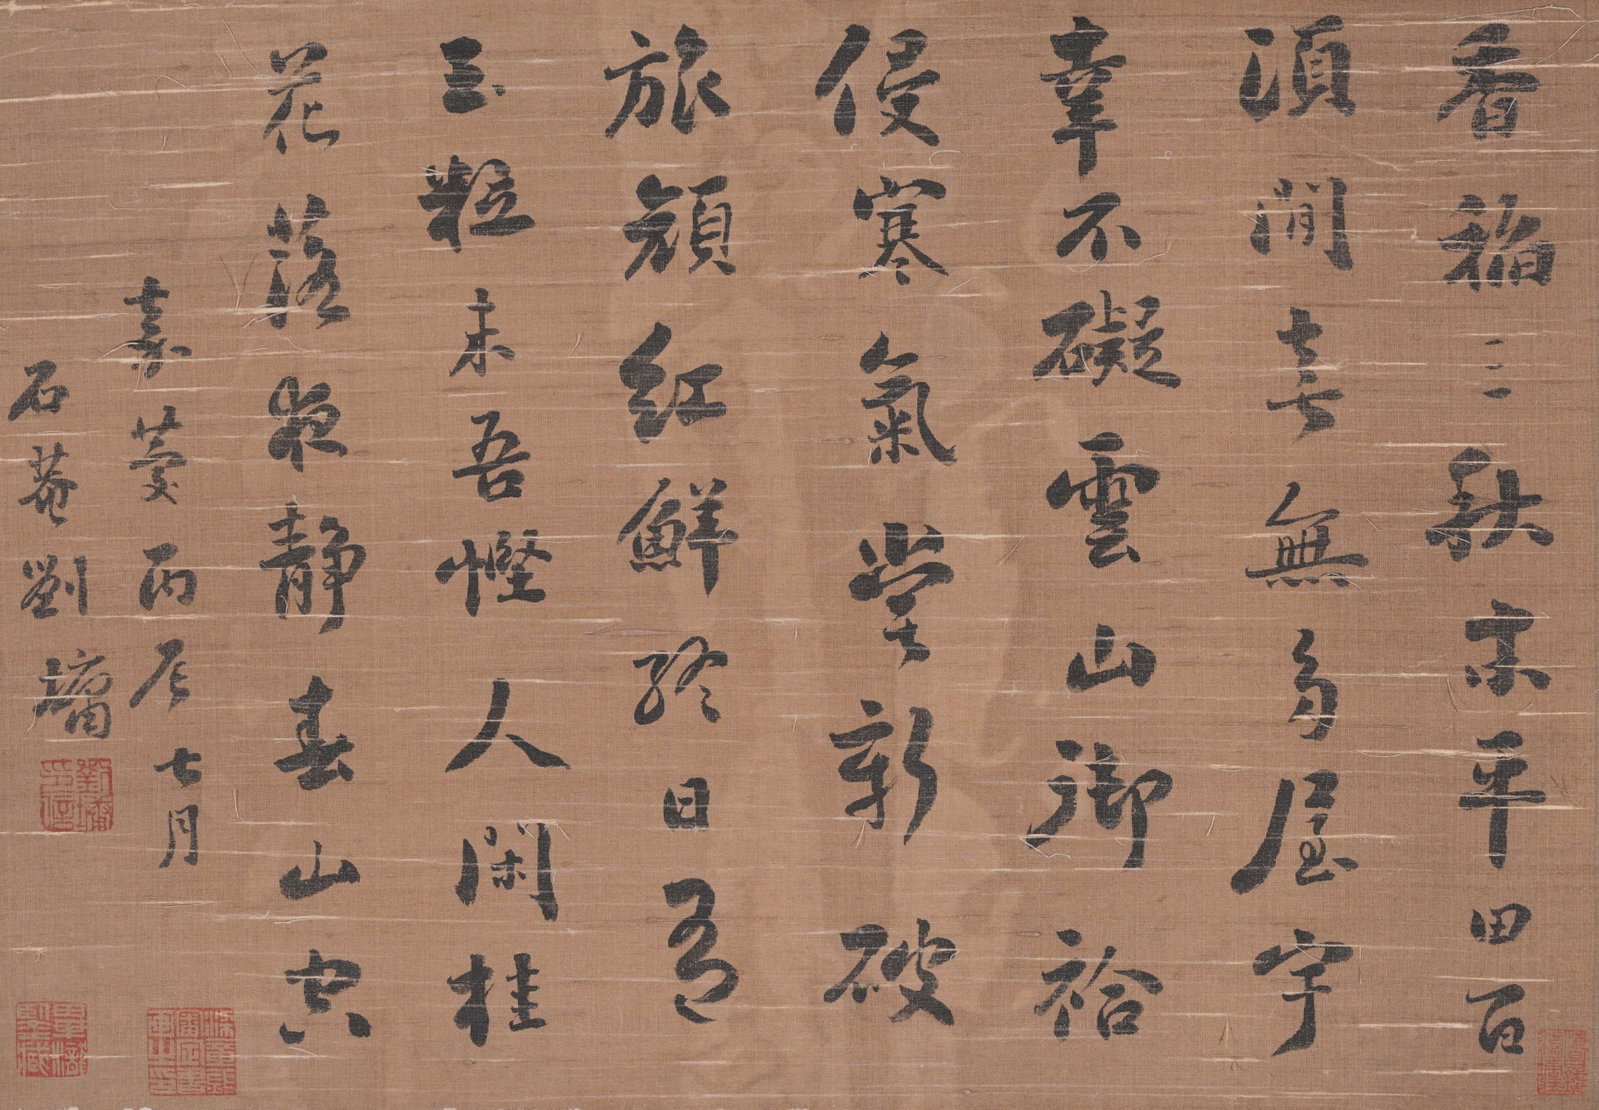 香稻三秋末平田百
頃間喜無多屋宇
幸不礙雲山御袷
侵寒氣嘗新破
旅顏紅鮮終日有
玉粒未吾慳人閑桂
花落夜靜春山空
嘉慶丙辰七月
石菴劉墉